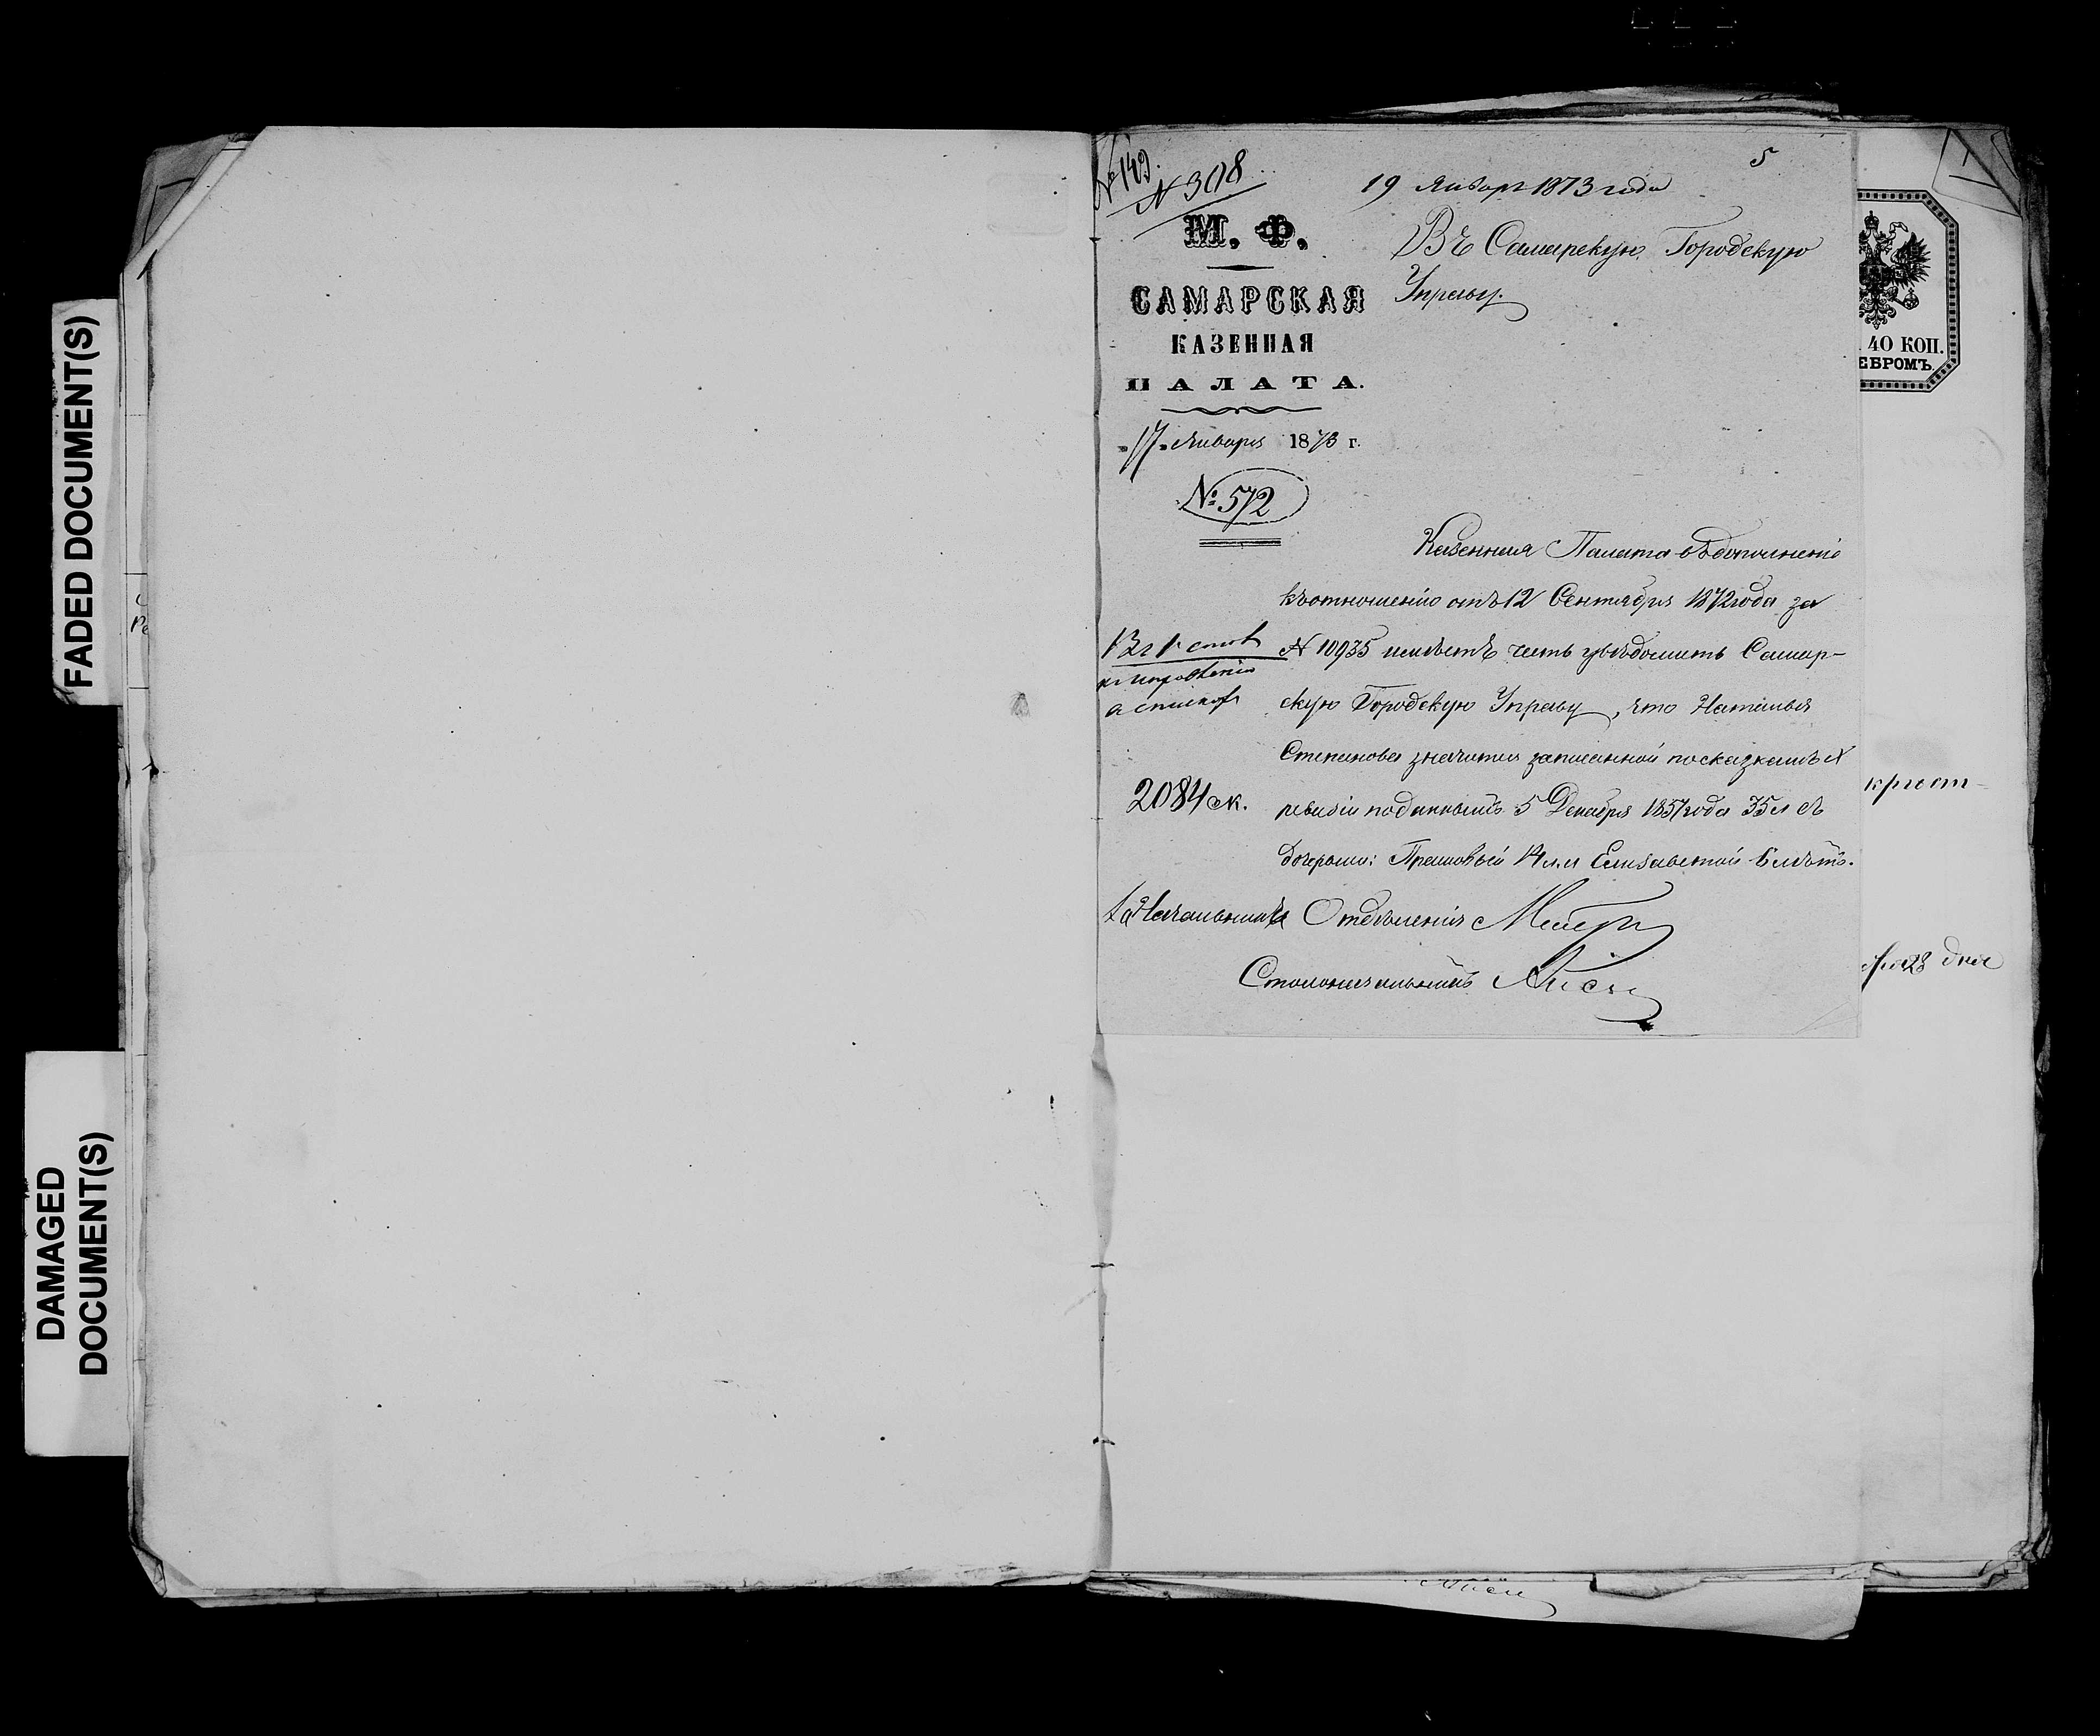 FADED DOCUMENT(S)
DAMAGED
DOCUMENT(S)
№ 149.
№ 308
5
19 Января 1873 года
М. Ф.
САМАРСКАЯ
КАЗЕННАЯ
ПАЛАТА.
"17" Января 1873 г.
№ 572
Въ Самарскую Городскую
Управу.
Казенная Палата въ дополненіе
къ отношенію отъ 12 Сентября 1872 года за
№ 10935 имѣетъ честь увѣдомить Самар-
скую Городскую Управу, что Наталья
Степанова значится записанной по сказкамъ X
ревизіи поданнымъ 5 Декабря 1857 года 35 л съ
дочерьми: 14 л. и Елизаветой 6 лѣтъ.
2084 ск.
За Начальника Отдѣленія
Столоначальникъ
40 КОП.
ЕБРОМЪ.
крест-
28 дня